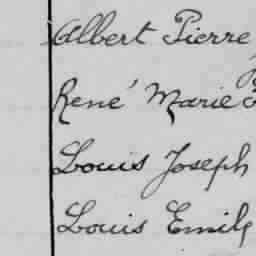 Albert Pierre
René Marie
Louis Joseph
Louis Emile